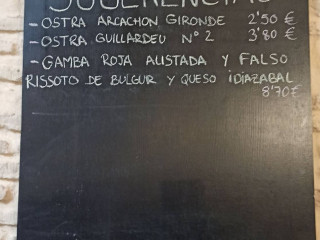 SUGERENCIAS
- OSTRA ARCACHON GIRONDE 2'50 €
- OSTRA GUILLARDEU Nº 2 3'80 €
- GAMBA ROJA ALISTADA Y FALSO
RISSOTO DE BULGUR Y QUESO IDIAZABAL
8'70€